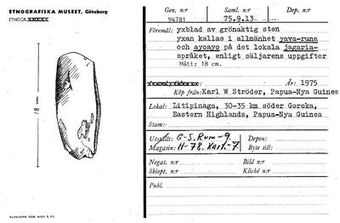 ETNOGRAFISKA MUSEET, Göteborg
ETNOGR. XXXXX
18
Gen. n:r
94781
Saml. n:r
75.9.13.
Dep. n:r
Föremål: yxblad av grönaktig sten
yxan kallas i allmänhet yava-runa
och ayoayo på det lokala jagaria-
språket, enligt säljarens uppgifter
Mått: 18 cm.
År: 1975
Köp från: Karl W Ströder, Papua-Nya Guinea
Lokal: Litipinaga, 30-35 km söder Goroka,
Eastern Highlands, Papua-Nya Guinea
Stam:
Utställt: G-S. Rum-9.
Depon:
Magasin: H-78. Kart.-7.
Byte till:
Negat. n:r
Bild n:r
Skiopt. n:r
Kliché n:r
Publ.